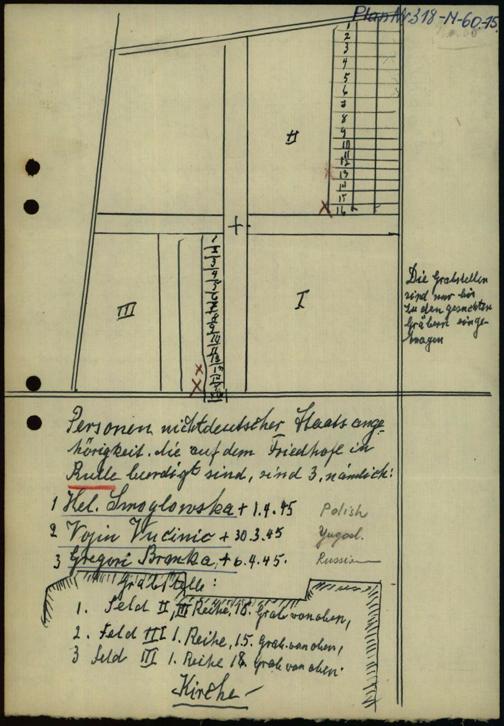 Plan Nr 318-N-60.75.
1
2
3
4
5
6
7
8
9
10
11
12
13
14
15
16
II
III
I
Die Grabstellen
sind nur bis
zu den gesuchten
Gräbern einge-
tragen
Personen nichtdeutscher Staatsange-
hörigkeit, die auf dem Friedhofe in
Rulle beerdigt sind, sind 3, nämlich:
1 Hel. Smoglowska + 1.4.45 Polish
2 Vojin Vucinic + 30.3.45 Yugosl.
3 Gregori Branka, + 6.4.45. Russian
Grabstelle:
1. Feld II, III Reihe, 18. Grab von oben,
2. Feld III 1. Reihe, 15. Grab von oben,
3 Feld III 1. Reihe 18. Grab von oben.
Kirche